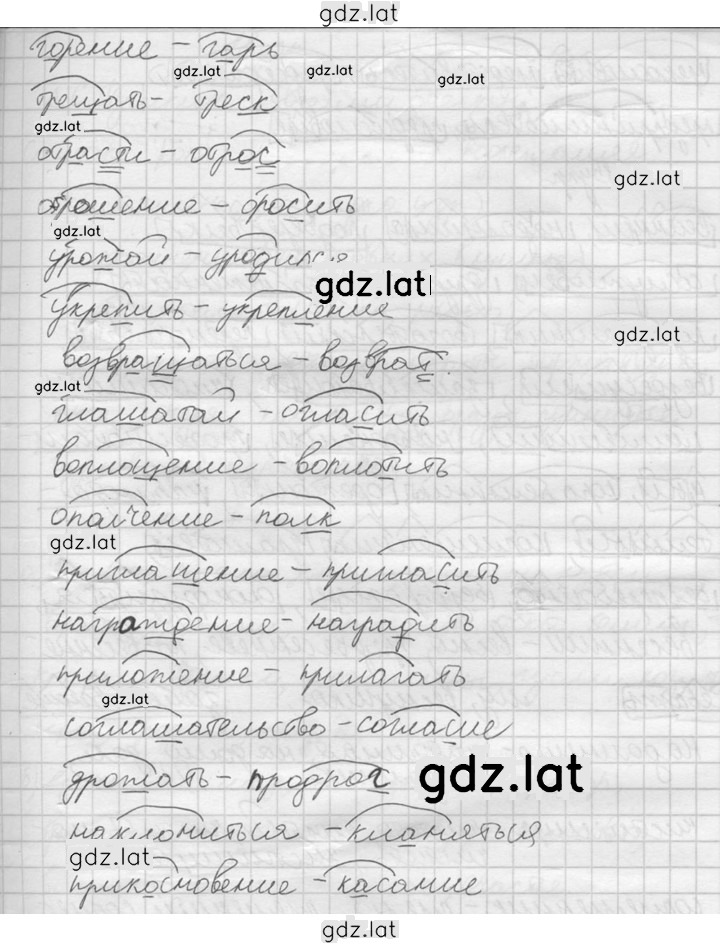 gdz.lat
горение - гарь
gdz.lat gdz.lat gdz.lat
трещать - треск
gdz.lat
отрасти - отрос
gdz.lat
отрошение - оросить
gdz.lat
урожай - уродился
gdz.lat
укрепить - укрепление
gdz.lat
возвращаться - возврат
gdz.lat
глашатай - огласить
воплощение - воплотить
ополчение - полк
gdz.lat
приглашение - пригласить
награждение - наградить
приложение - прилагать
gdz.lat
соглашательство - согласие
дрожать - продрог
gdz.lat
наклониться - кланяться
gdz.lat
прикосновение - касание
gdz.lat